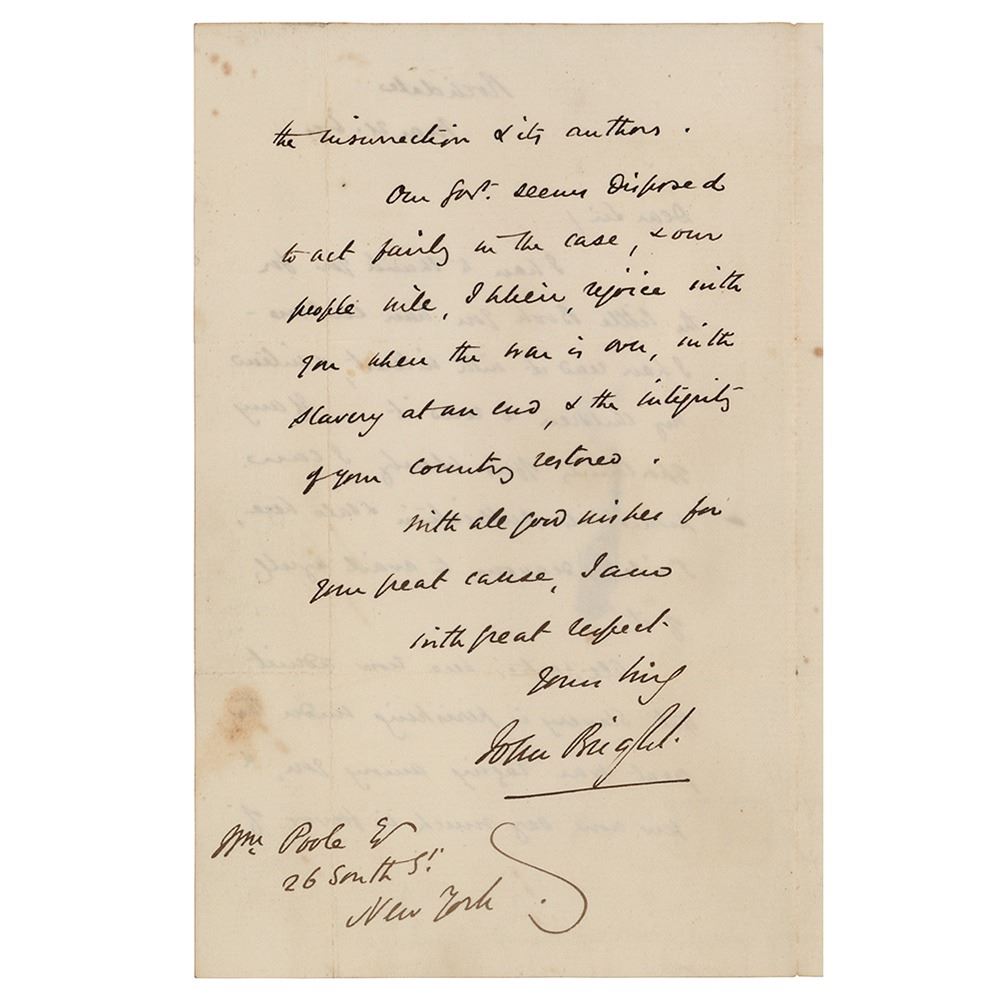 the insurrection & its authors.
Our Govt. seems disposed
to act fairly in the case, & our
people will, I believe, rejoice with
you when the war is over, with
slavery at an end, & the integrity
of your country restored.
with all good wishes for
your great cause, I am
with great respect
Yours truly
John Bright.
Wm Poole Esq
26 South St.
New York.